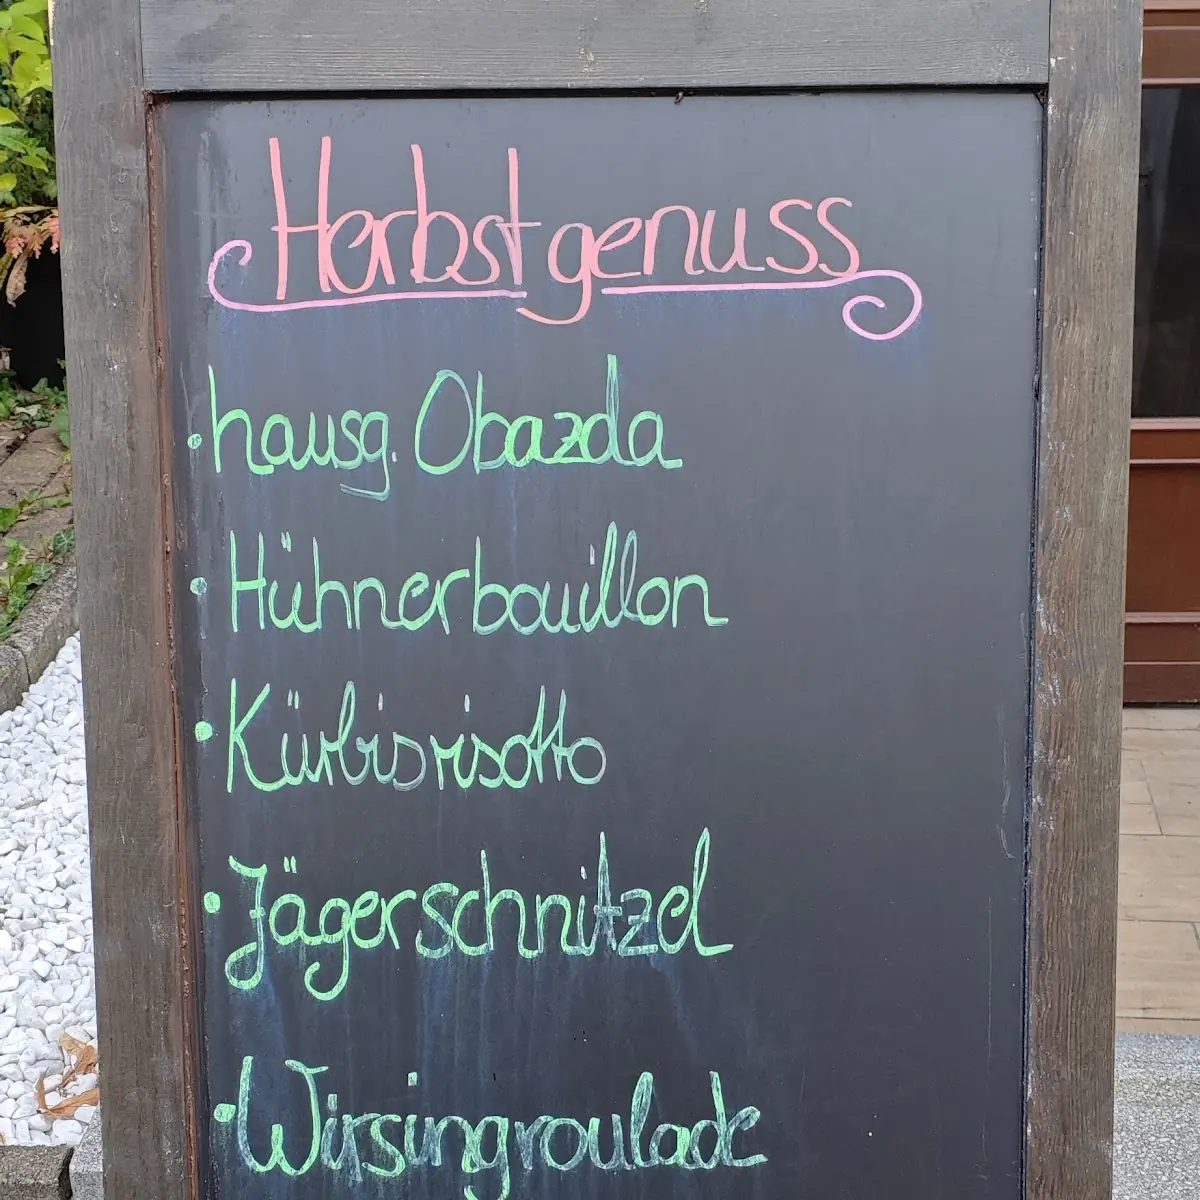 Herbstgenuss
• hausg. Obazda
• Hühnerbouillon
• Kürbisrisotto
• Jägerschnitzel
• Wirsingroulade